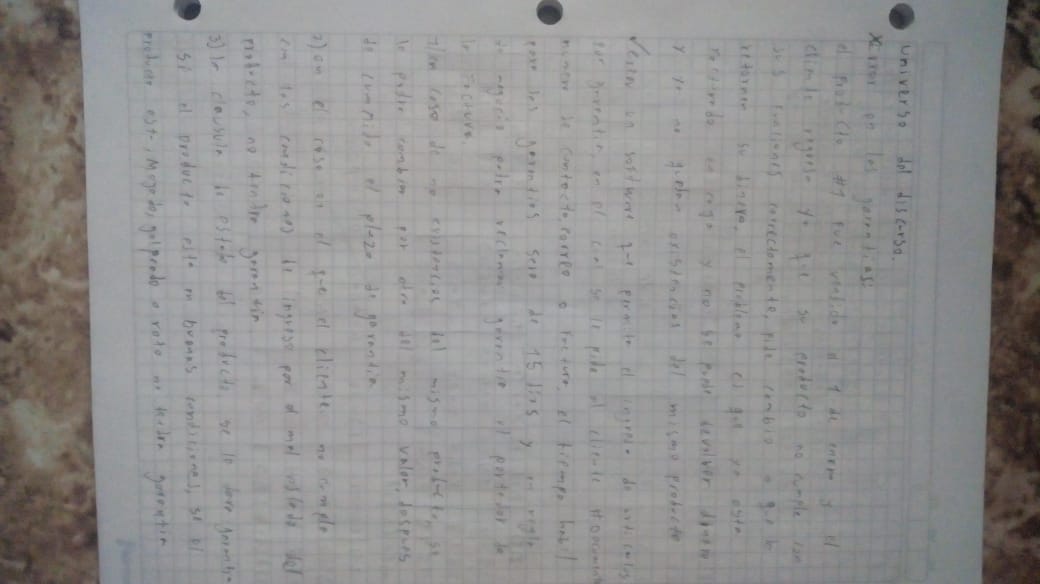 Universo del discurso.
X Error en las garantias:
el producto #1 fue vendido el 1 de enero y el
cliente regreso ya que su producto no cumple con
sus funciones correctamente, pide cambio o que le
retornen su dinero, el problema es que ya esta
en caja y no se puede devolver dinero
y ya no quedan existencias del mismo producto
✓ exista un software que permita el ingreso de articulos
por garantia, en el cual se le pida al cliente
número de contacto, correo o factura, el tiempo habil
para las garantias sera de 15 dias y
de negocio podra reclamar garantia el portador de
la factura.
1) en caso de no existencias del mismo producto, se
le podra cambiar por otro del mismo valor, despues
de cumplido el plazo de garantia
2) en el caso en el que el cliente no cumple
con las condiciones de ingreso por el mal estado del
producto, no tendra garantia
3) la clausula de estado del producto se le dara garantia
si el producto esta en buenas condiciones, si el
producto esta, Mojado, golpeado o roto no tendra garantia